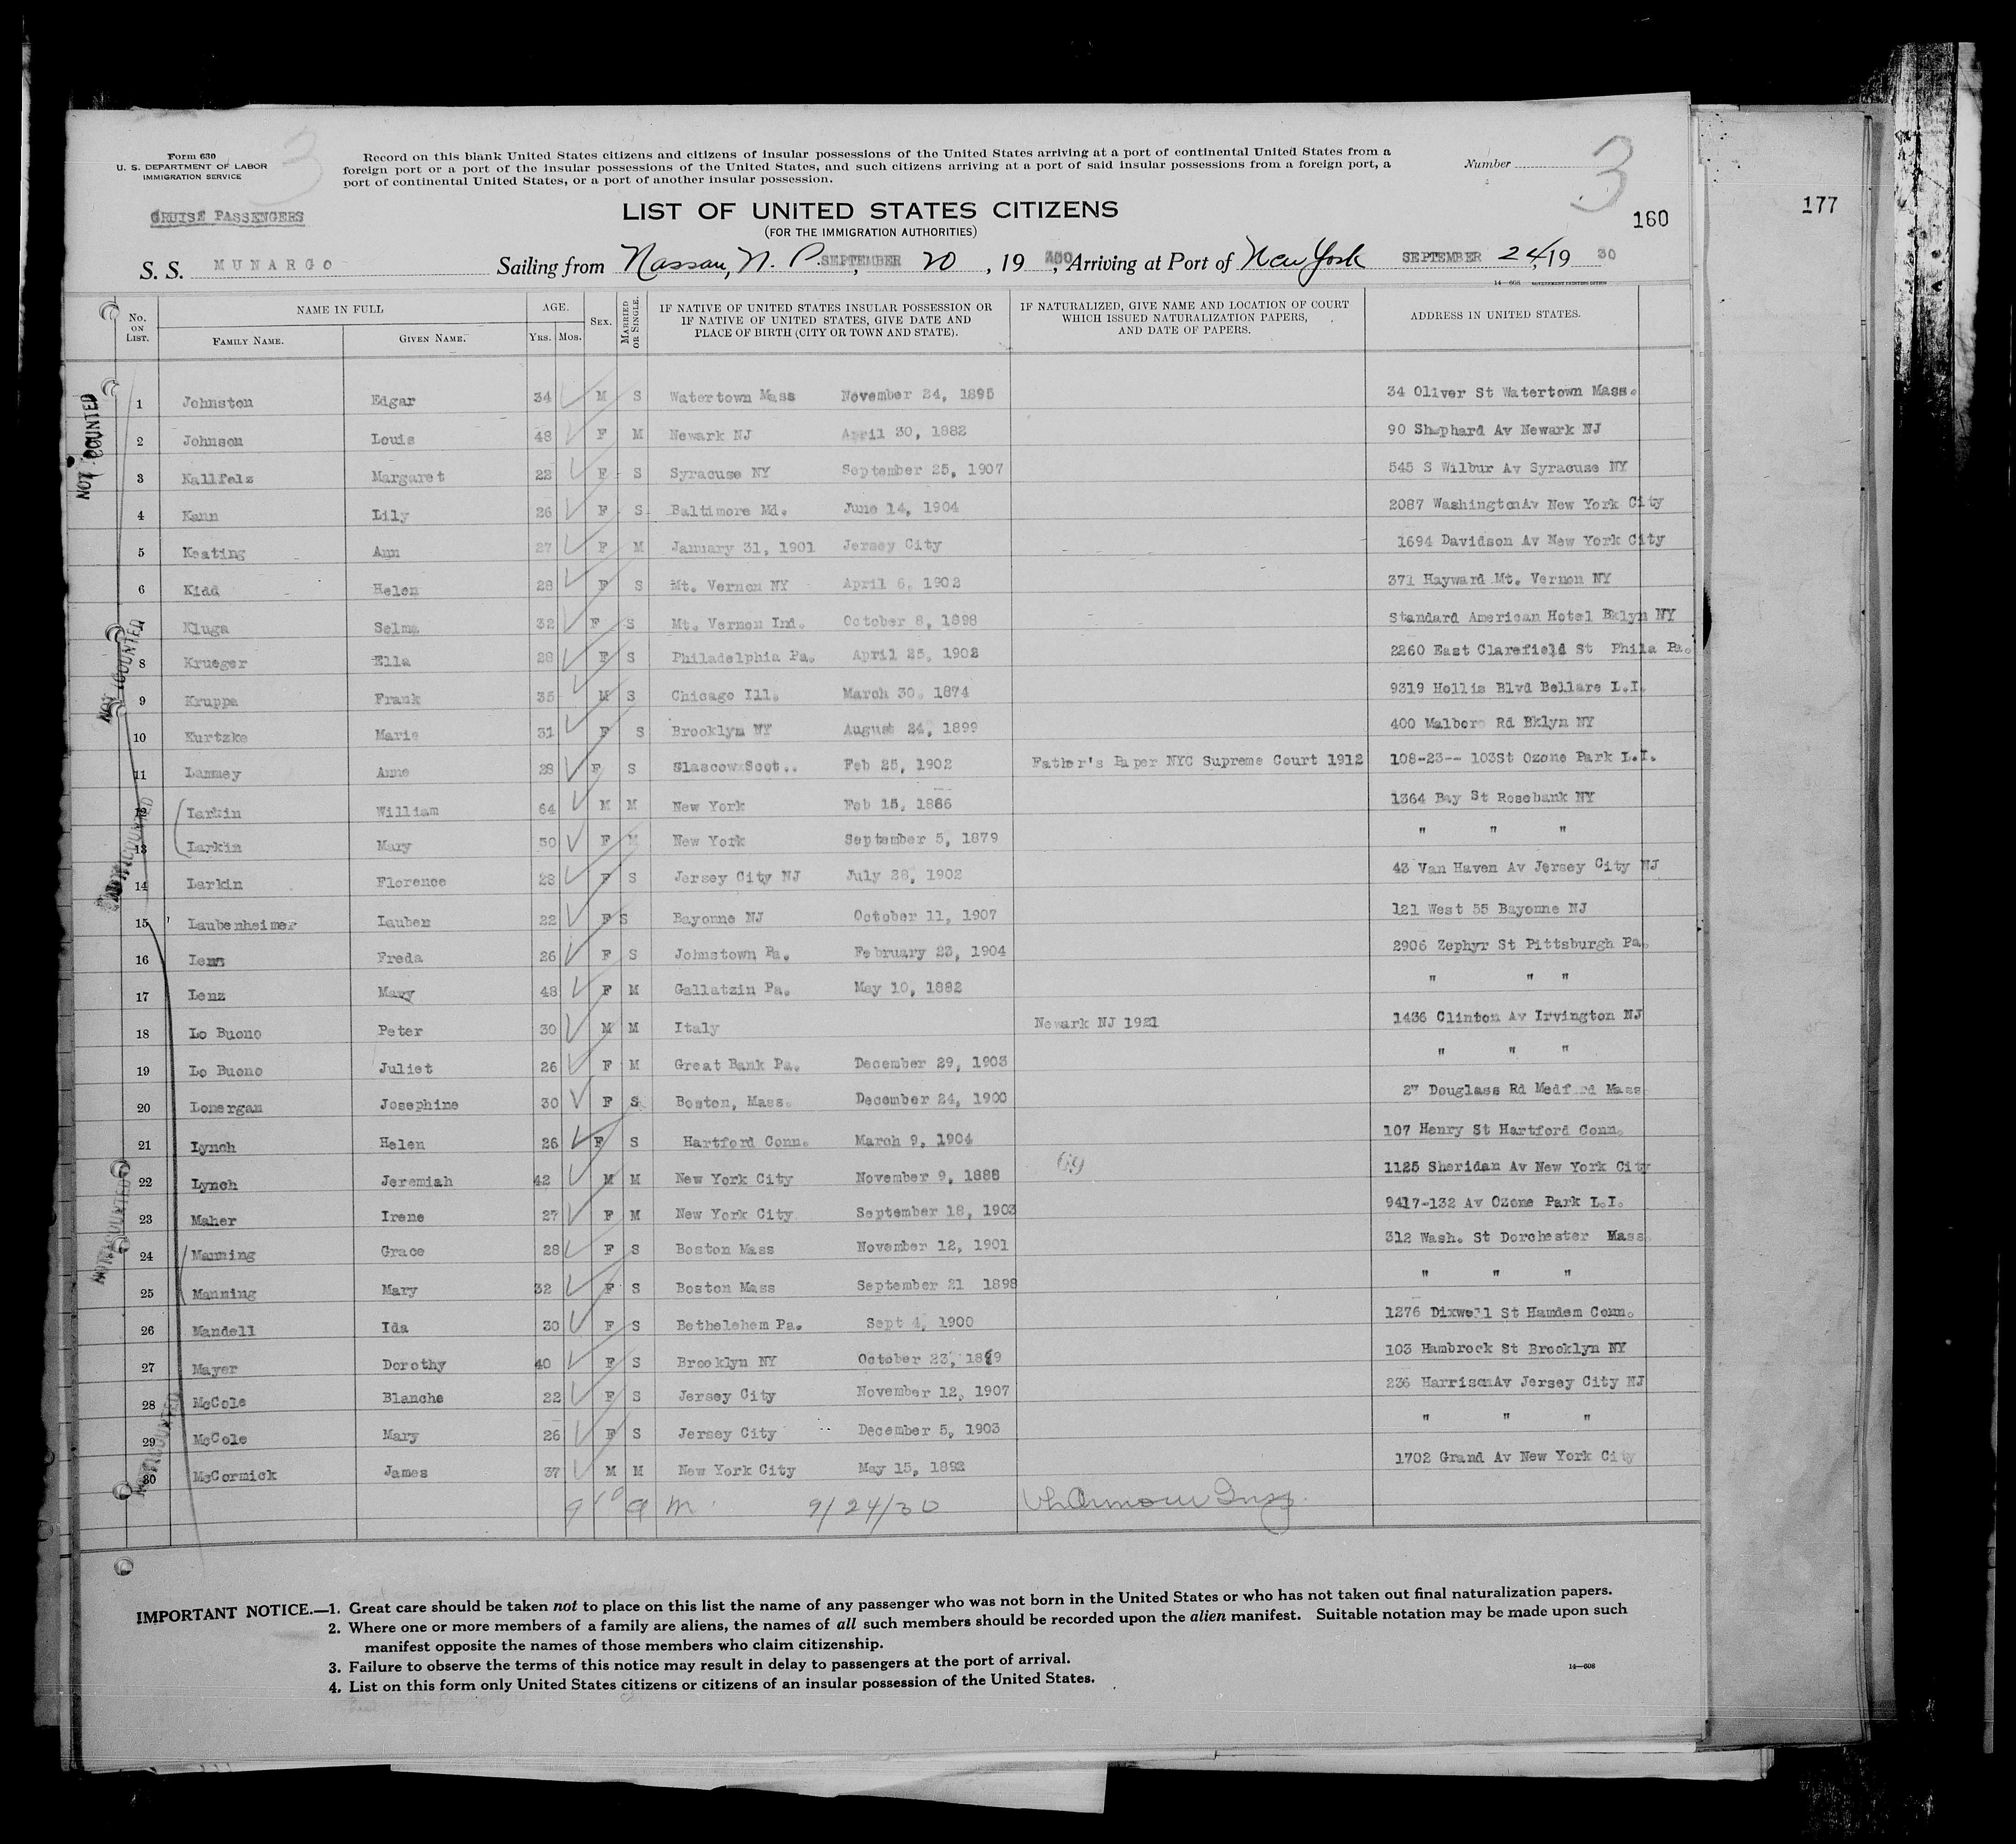 Form 630
U. S. DEPARTMENT OF LABOR
IMMIGRATION SERVICE
3
Record on this blank United States citizens and citizens of insular possessions of the United States arriving at a port of continental United States from a
foreign port or a port of the insular possessions of the United States, and such citizens arriving at a port of said insular possessions from a foreign port, a
port of continental United States, or a port of another insular possession.
Number
3
CRUISE PASSENGERS
LIST OF UNITED STATES CITIZENS
(FOR THE IMMIGRATION AUTHORITIES)
160
177
S. S. MUNARGO Sailing from Nassau, N. P. SEPTEMBER 20, 19 30, Arriving at Port of New York SEPTEMBER 24, 19 30
14—608 GOVERNMENT PRINTING OFFICE
No. ON LIST.
NAME IN FULL
FAMILY NAME. GIVEN NAME.
AGE.
YRS. MOS.
SEX.
MARRIED OR SINGLE.
IF NATIVE OF UNITED STATES INSULAR POSSESSION OR
IF NATIVE OF UNITED STATES, GIVE DATE AND
PLACE OF BIRTH (CITY OR TOWN AND STATE).
IF NATURALIZED, GIVE NAME AND LOCATION OF COURT
WHICH ISSUED NATURALIZATION PAPERS,
AND DATE OF PAPERS.
ADDRESS IN UNITED STATES.
1 Johnston Edgar 34 M S Watertown Mass November 24, 1895 34 Oliver St Watertown Mass.
2 Johnson Louis 48 F M Newark NJ April 30, 1882 90 Shephard Av Newark NJ
3 Kallfelz Margaret 22 F S Syracuse NY September 25, 1907 545 S Wilbur Av Syracuse NY
4 Kann Lily 26 F S Baltimore Md. June 14, 1904 2087 WashingtonAv New York City
5 Keating Ann 27 F M January 31, 1901 Jersey City 1694 Davidson Av New York City
6 Kidd Helen 28 F S Mt. Vernon NY April 6, 1902 371 Hayward Mt. Vernon NY
Kluga Selma 32 F S Mt. Vernon Ind. October 8, 1898 Standard American Hotel Bklyn NY
8 Krueger Ella 28 F S Philadelphia Pa. April 25, 1902 2260 East Clarefield St Phila Pa.
9 Kruppa Frank 35 M S Chicago Ill. March 30, 1874 9319 Hollis Blvd Bellare L.I.
10 Kurtzke Marie 31 F S Brooklyn NY August 24, 1899 400 Malboro Rd Bklyn NY
11 Lammey Anne 28 F S Glascow Scot.. Feb 25, 1902 Father's Paper NYC Supreme Court 1912 108-23-- 103St Ozone Park L.I.
12 Larkin William 64 M M New York Feb 15, 1866 1364 Bay St Rosebank NY
13 Larkin Mary 50 F M New York September 5, 1879 " " "
14 Larkin Florence 28 F S Jersey City NJ July 28, 1902 43 Van Haven Av Jersey City NJ
15 Laubenheimer Lauben 22 F S Bayonne NJ October 11, 1907 121 West 55 Bayonne NJ
16 Freda 26 F S Johnstown Pa. February 23, 1904 2906 Zephyr St Pittsburgh Pa.
17 Lenz Mary 48 F M Gallatzin Pa. May 10, 1882 " " "
18 Lo Buono Peter 30 M M Italy Newark NJ 1921 1436 Clinton Av Irvington NJ
19 Lo Buono Juliet 26 F M Great Bank Pa. December 29, 1903 " " "
20 Lonergan Josephine 30 F S Boston, Mass. December 24, 1900 27 Douglass Rd Medford Mass
21 Lynch Helen 26 F S Hartford Conn. March 9, 1904 107 Henry St Hartford Conn.
22 Lynch Jeremiah 42 M M New York City November 9, 1888 69 1125 Sheridan Av New York City
23 Maher Irene 27 F M New York City September 18, 1903 9417-132 Av Ozone Park L.I.
24 Manning Grace 28 F S Boston Mass November 12, 1901 312 Wash. St Dorchester Mass.
25 Manning Mary 32 F S Boston Mass September 21 1898 " " "
26 Mandell Ida 30 F S Bethelehem Pa. Sept 4, 1900 1276 Dixwell St Hamdem Conn.
27 Mayer Dorothy 40 F S Brooklyn NY October 23, 1889 103 Hambrock St Brooklyn NY
28 McCole Blanche 22 F S Jersey City November 12, 1907 236 HarrisonAv Jersey City NJ
29 McCole Mary 26 F S Jersey City December 5, 1903 " " "
30 McCormick James 37 M M New York City May 15, 1892 1702 Grand Av New York City
9/24/30
NOT COUNTED
NOT COUNTED
NOT COUNTED
NOT COUNTED
NOT COUNTED
IMPORTANT NOTICE.—1. Great care should be taken not to place on this list the name of any passenger who was not born in the United States or who has not taken out final naturalization papers.
2. Where one or more members of a family are aliens, the names of all such members should be recorded upon the alien manifest. Suitable notation may be made upon such
manifest opposite the names of those members who claim citizenship.
3. Failure to observe the terms of this notice may result in delay to passengers at the port of arrival.
4. List on this form only United States citizens or citizens of an insular possession of the United States.
14—608